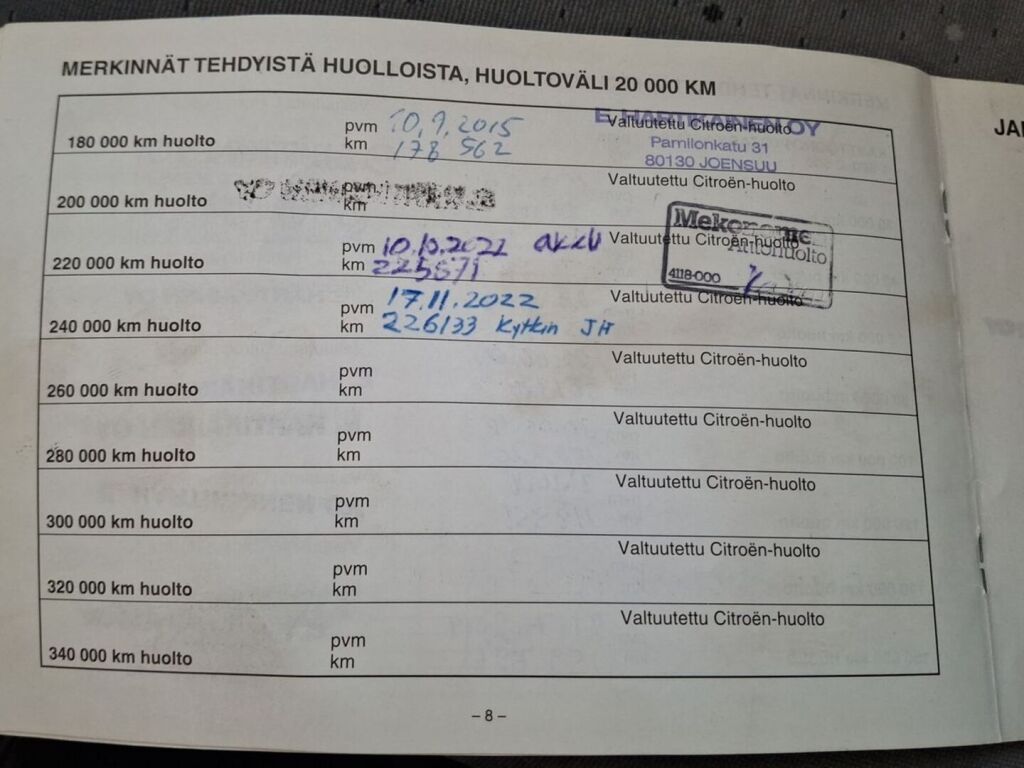 MERKINNÄT TEHDYISTÄ HUOLLOISTA, HUOLTOVÄLI 20 000 KM
180 000 km huolto
pvm 10.9.2015
km 178 562
Valtuutettu Citroën-huolto
E. HARTIKAINEN OY
Pamilonkatu 31
80130 JOENSUU
200 000 km huolto
pvm
km
Valtuutettu Citroën-huolto
220 000 km huolto
pvm 10.10.2022 akku
km 225671
Valtuutettu Citroën-huolto
Mekonomen
Autohuolto
4118-000
240 000 km huolto
pvm 17.11.2022
km 226133 Kytkin JH
Valtuutettu Citroën-huolto
260 000 km huolto
pvm
km
Valtuutettu Citroën-huolto
280 000 km huolto
pvm
km
Valtuutettu Citroën-huolto
300 000 km huolto
pvm
km
Valtuutettu Citroën-huolto
320 000 km huolto
pvm
km
Valtuutettu Citroën-huolto
340 000 km huolto
pvm
km
Valtuutettu Citroën-huolto
– 8 –